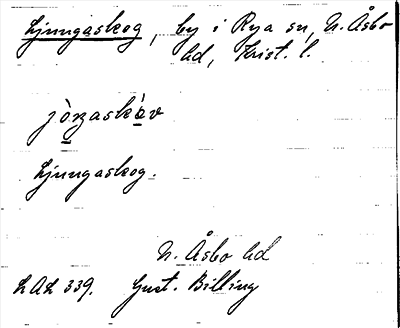 Ljungaskog, by i Rya sn, N. Åsbo
hd, Krist. l.
jòŋaskòv
Ljungaskog.
N. Åsbo hd
LAL 339. Gust. Billing